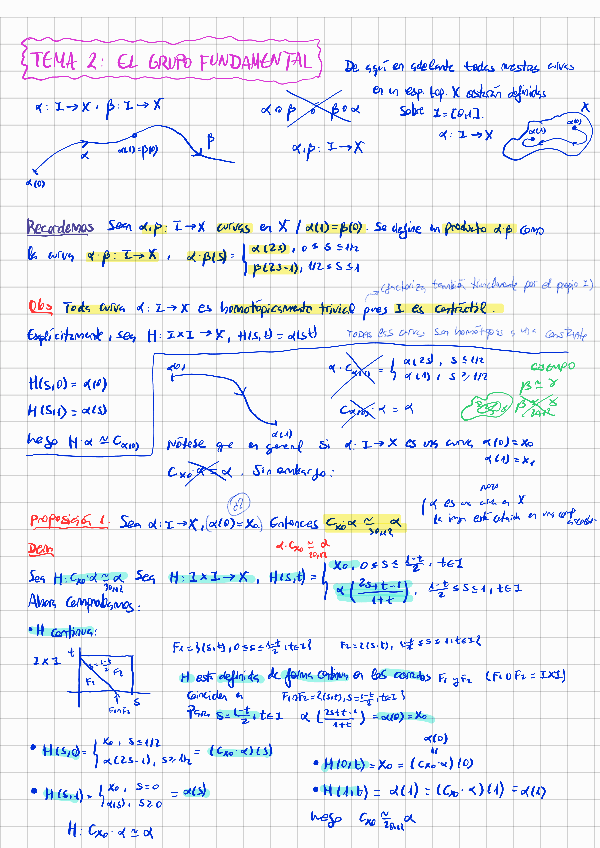 TEMA 2: EL GRUPO FUNDAMENTAL
De aquí en adelante todas nuestras curvas
en un esp. top. X estarán definidas
sobre I = [0,1].
α: I → X, β: I → X
α∘β β∘α
α: I → X
α,β: I → X
α(0) α α(1)=β(0) β
α(1) α(0) X
Recordemos Sean α,β: I → X curvas en X / α(1)=β(0). Se define en producto α·β como
la curva α·β: I → X, α·β(s) = { α(2s), 0 ≤ s ≤ 1/2
β(2s-1), 1/2 ≤ s ≤ 1
(factoriza también trivialmente por el propio I)
Obs Toda curva α: I → X es homotópicamente trivial pues I es contráctil.
Explícitamente, sea H: I×I → X, H(s,t) = α(st)
Todas las curvas son homótopas a una constante
H(s,0) = α(0)
H(s,1) = α(s)
luego H: α ≃ Cα(0)
α(0)
α(1)
α·Cα(1) = { α(2s), s ≤ 1/2
α(1), s ≥ 1/2
Cα(0)·α = α
EJEMPLO
β ≃ γ
Nótese que en general si α: I → X es una curva α(0)=x0
α(1)=x1
Cx0·α = α. Sin embargo:
Proposición 1. Sea α: I → X, (α(0)=x0) Entonces Cx0·α ≃ α
{0,1}
α es una curva en X
la imagen está contenida en una comp
Dem
α·Cx1 ≃ α
{0,1}
Sea H: Cx0·α ≃ α Sea H: I×I → X, H(s,t) = { x0, 0 ≤ s ≤ 1-t/2, t∈I
α(2s+t-1/1+t), 1-t/2 ≤ s ≤ 1, t∈I
Ahora comprobamos:
• H continua:
F1 = {(s,t), 0 ≤ s ≤ 1-t/2, t∈I} F2 = {(s,t), 1-t/2 ≤ s ≤ 1, t∈I}
I×I t s=1-t/2 F1 F2 s F1∩F2
H está definida de forma continua en los cerrados F1 y F2 (F1∪F2 = I×I)
coinciden en F1∩F2 = {(s,t), s=1-t/2, t∈I}
Para s=1-t/2, t∈I α(2s+t-1/1+t) = α(0) = x0
• H(s,0) = { x0, s ≤ 1/2
α(2s-1), s ≥ 1/2 = (Cx0·α)(s)
α(0)
• H(0,t) = x0 = (Cx0·α)(0)
• H(s,1) = { x0, s=0
α(s), s ≥ 0 = α(s)
• H(1,t) = α(1) = (Cx0·α)(1) = α(1)
H: Cx0·α ≃ α
luego Cx0·α ≃ α
{0,1}